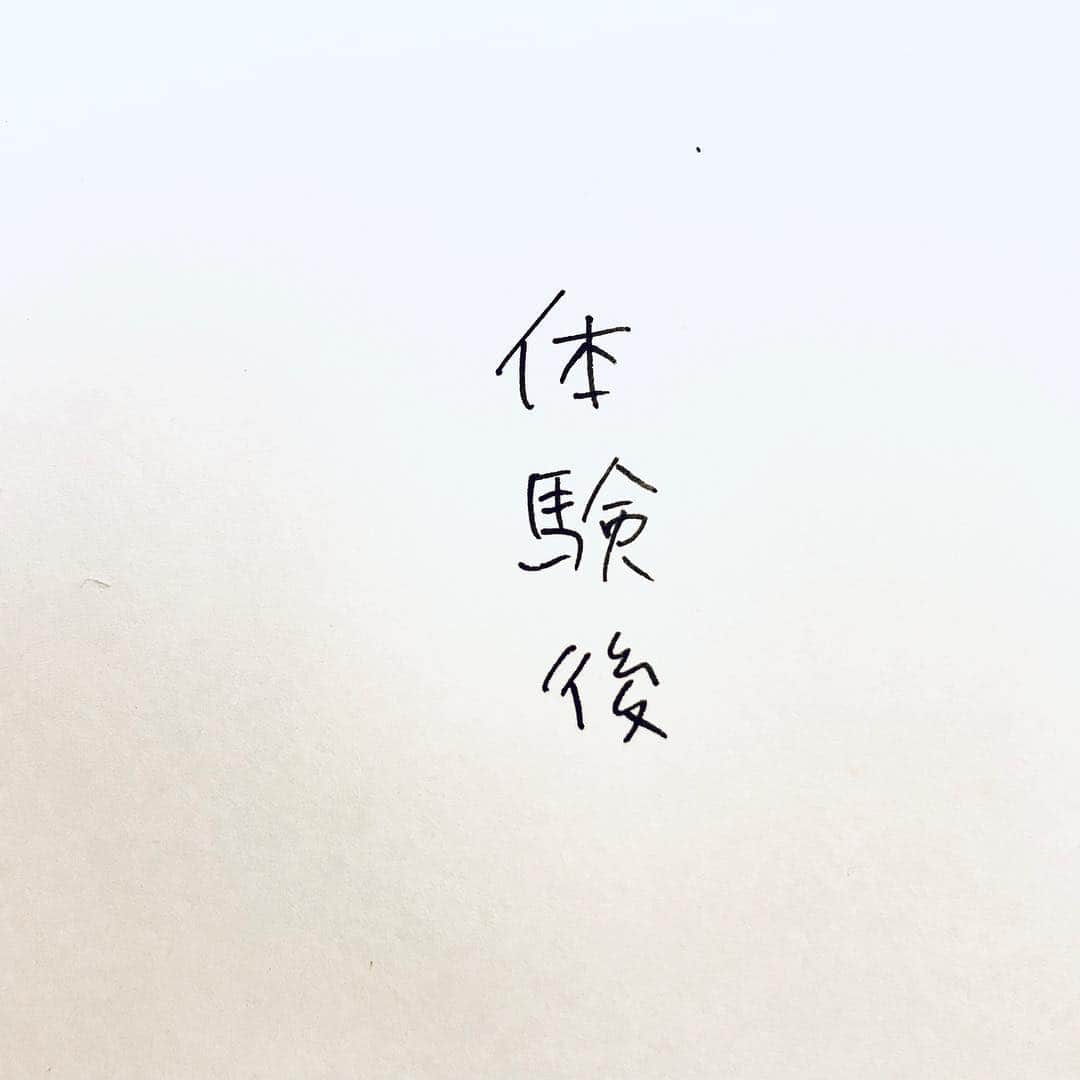 体験後